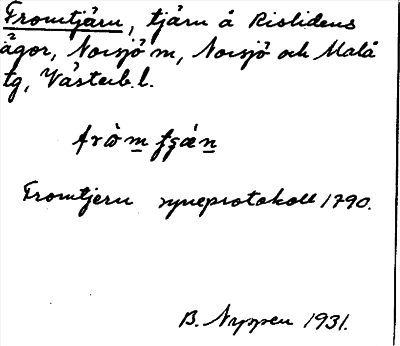 Fromtjärn, tjärn å Rislidens
ägor, Norsjö m, Norsjö och Malå
tg, Västerb. l.
Fromtjern syneprotokoll 1790.
B. Nyppen 1931.